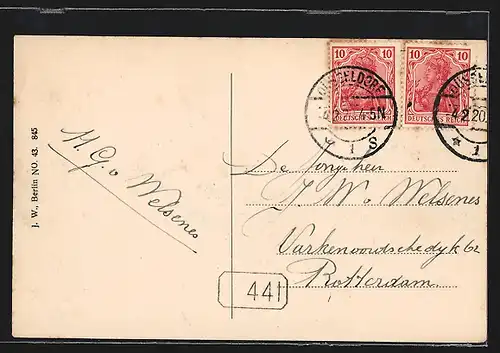 10 10
10 10
DEUTSCHES REICH
DEUTSCHES REICH
DÜSSELDORF
4-5N
1 S
DÜSSELDORF
4.2.20.
* 1
M. G. v Welsenes
J. W., Berlin NO. 43. 845
De Jongheer
J. W. v Welsenes
Varkenoordschedyk 62
Rotterdam
441